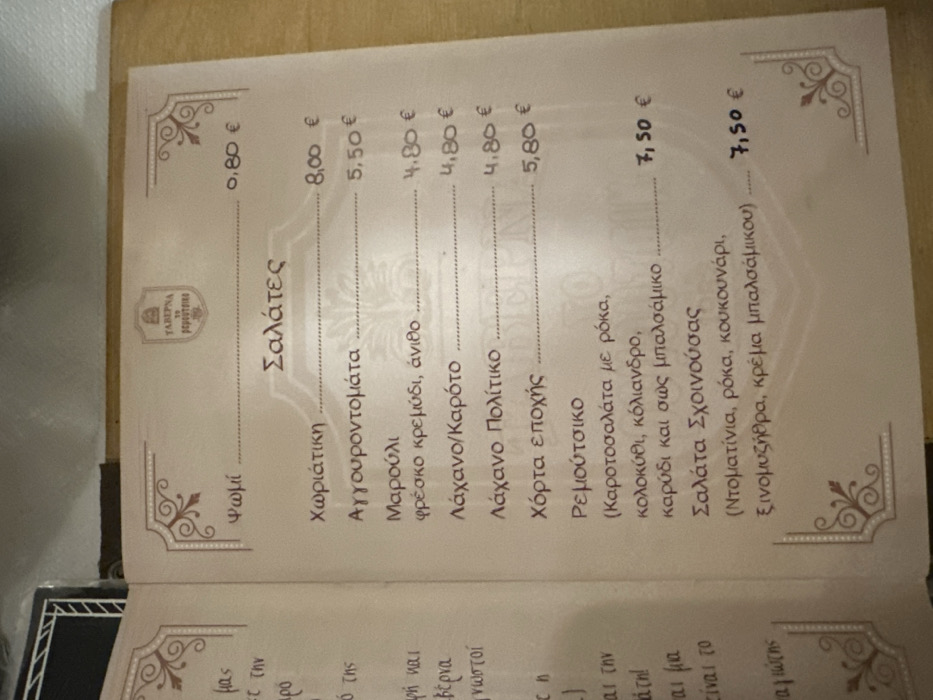 ΤΑΒΕΡΝΑ
ΤΟ
ΡΕΜΟΥΤΣΙΚΟ
Ψωμί 0,80 €
Σαλάτες
Χωριάτικη 8,00 €
Αγγουροντομάτα 5,50 €
Μαρούλι
φρέσκο κρεμύδι, άνιθο 4,80 €
Λάχανο/Καρότο 4,80 €
Λάχανο Πολίτικο 4,80 €
Χόρτα εποχής 5,80 €
Ρεμούτσικο
(Καροτοσαλάτα με ρόκα,
κολοκύθι, κόλιανδρο,
καρύδι και σως μπαλσάμικο 7,50 €
Σαλάτα Σχοινούσας
(Ντοματίνια, ρόκα, κουκουνάρι,
ξινομυζήθρα, κρέμα μπαλσάμικου) 7,50 €
μας
την
της
και
βέρνα
γνωστοί
η
αι την
αι μια
είναι το